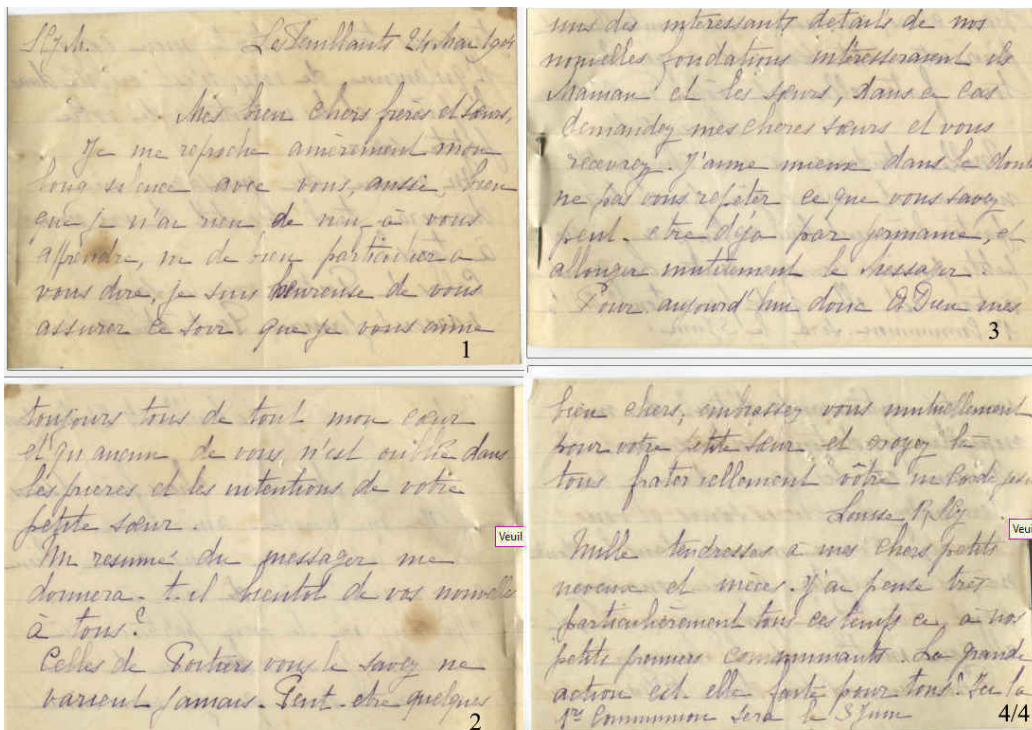 Les Feuillants 24 Mai 1901
Mes bien chers frères et sœurs,
Je me reproche amèrement mon
long silence avec vous, aussi, bien
que je n'ai rien de neuf à vous
apprendre, ni de bien particulier à
vous dire, je suis heureuse de vous
assurer ce soir que je vous aime
1
toujours tous de tout mon cœur
et qu'aucun de vous n'est oublié dans
les prières et les intentions de votre
petite sœur.
Un resumé du messager me
donnera-t-il bientot de vos nouvelles
à tous?
Celles de Poitiers vous le savez ne
varient jamais. Peut-etre quelques
Veuil
2
uns des intéressants détails de nos
nouvelles fondations intéresseraient ils
Maman et les sœurs, dans ce cas
demandez mes chères sœurs et vous
recevrez. J'aime mieux dans le doute
ne pas vous répéter ce que vous savez
peut-etre déja par Germaine, et
allonger inutilement le Messager.
Pour aujourd'hui donc A Dieu mes
3
bien chers, embrassez vous mutuellement
pour votre petite sœur et croyez la
tous fraternellement vôtre in Corde Jesu
Louise
Mille tendresses à mes chers petits
neveux et nièces. J'ai pensé très
particulièrement tous ces temps ci, à nos
petits premiers communiants. La grande
action est elle faite pour tous? Ici la
1re Communion sera le 3 Juin
Veui
4/4